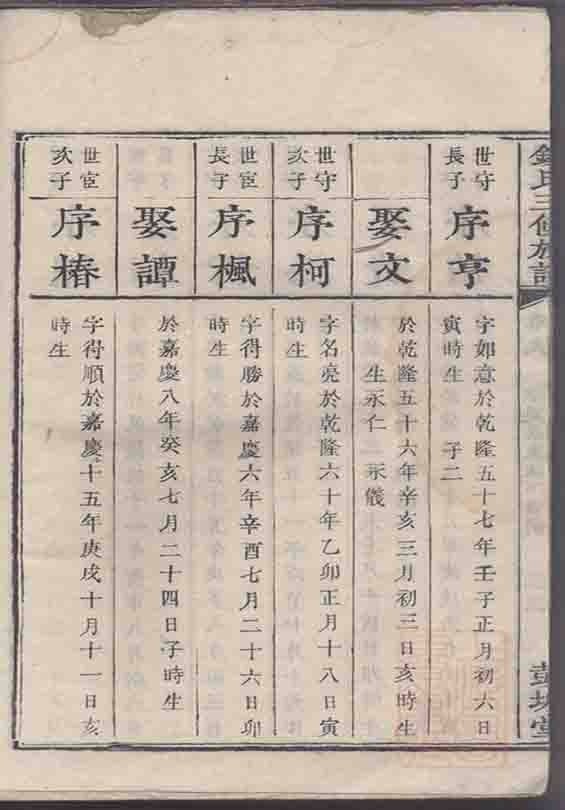 氏三修族譜
世守
長子
序亨
字如意於乾隆五十七年壬子正月初六日
寅時生 子二
娶文
於乾隆五十六年辛亥三月初三日亥時生
生永仁 永儀
世守
次子
序柯
字名亮於乾隆六十年乙卯正月十八日寅
時生
世宦
長子
序楓
字得勝於嘉慶六年辛酉七月二十六日卯
時生
娶譚
於嘉慶八年癸亥七月二十四日子時生
世宦
次子
序椿
字得順於嘉慶十五年庚戌十月十一日亥
時生